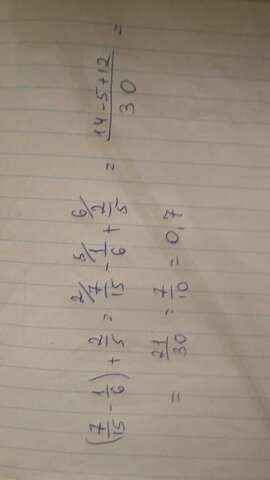 (7/15 - 1/6) + 2/5 = 2/ 7/15 - 5/ 1/6 + 6/ 2/5 = (14 - 5 + 12)/30 =
= 21/30 = 7/10 = 0,7